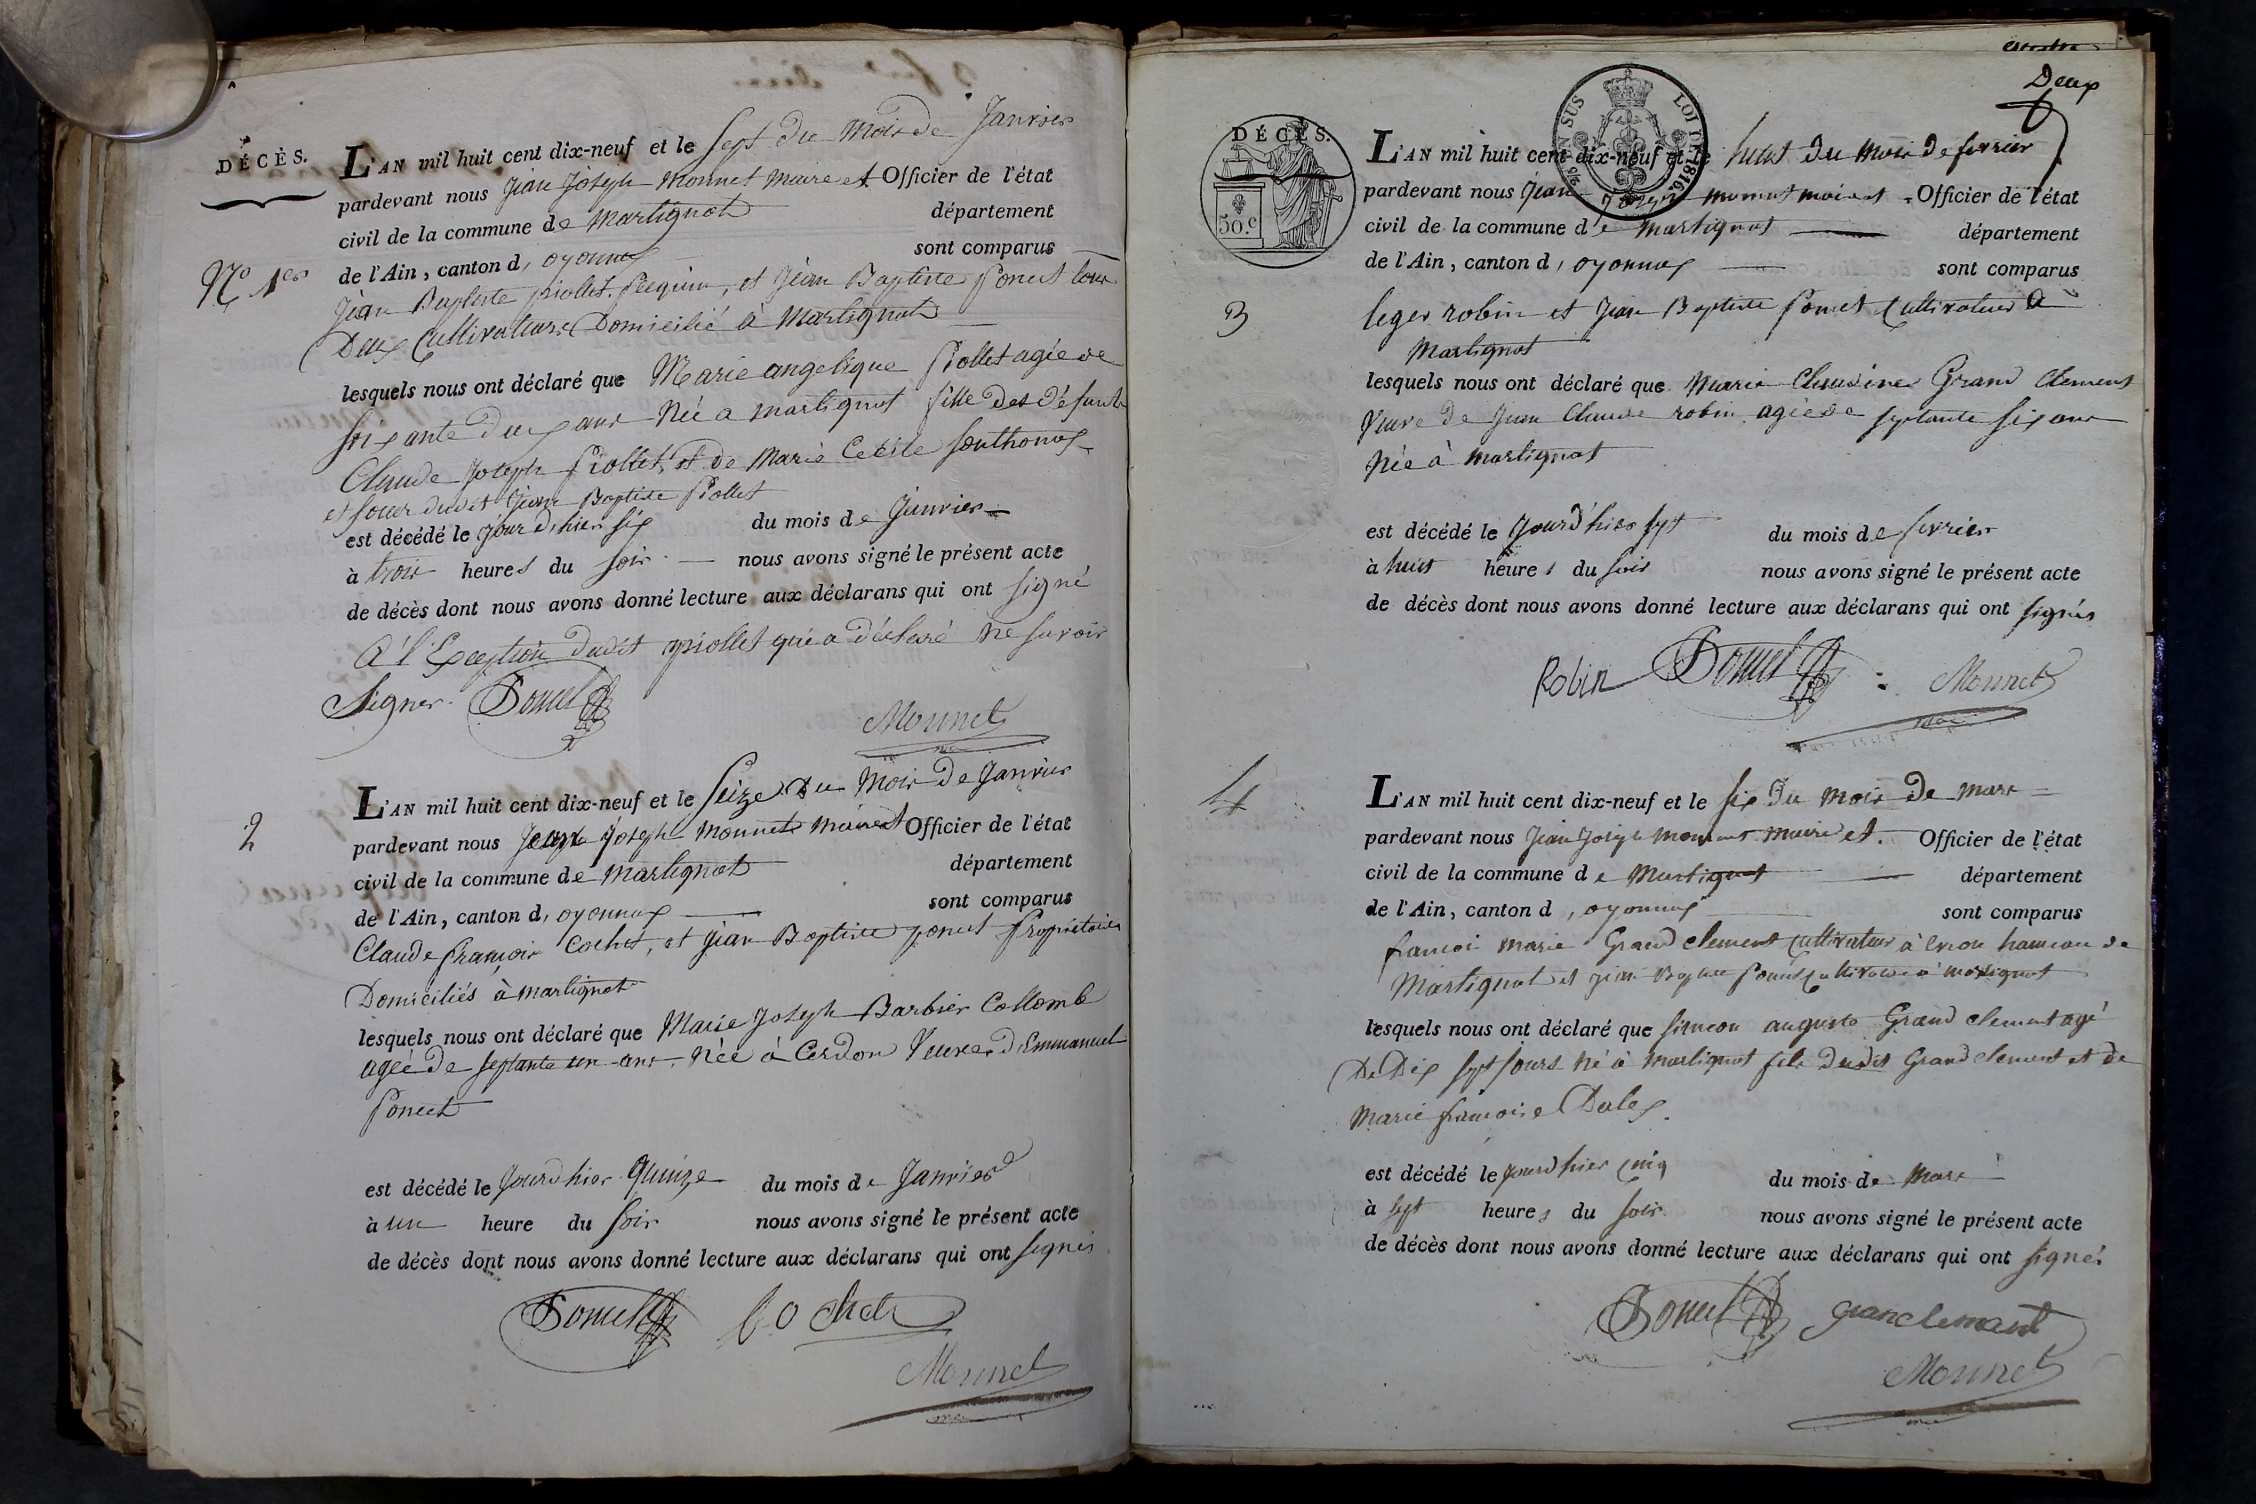 DÉCÈS.
L'AN mil huit cent dix-neuf et le Sept du mois de Janvier
pardevant nous Jean Joseph Monnet maire et Officier de l'état
civil de la commune de Martignat département
de l'Ain, canton d'oyonnax sont comparus
N.o 1er
Jean Baptiste piollet et Jean Baptiste Poncet tous
Deux Cultivateurs Domicilié à Martignat
lesquels nous ont déclaré que Marie angelique Piollet agée de
soixante deux ans Née a martignat fille des défunts
Claude Joseph Piollet, et de Marie Cecile Sonthonax
et soeur dudit Jean Baptiste Piollet
est décédé le jour d'hier six du mois de Janvier
à trois heures du soir nous avons signé le présent acte
de décès dont nous avons donné lecture aux déclarans qui ont signé
A l'Exception dudit piollet qui a déclaré ne savoir
Signer. Poncet
Monnet
2
L'AN mil huit cent dix-neuf et le Seize du Mois de Janvier
pardevant nous Jean Joseph Monnet maire et Officier de l'état
civil de la commune de Martignat département
de l'Ain, canton d'oyonnax sont comparus
Claude François Cochet, et Jean Baptiste poncet Propriétaires
Domiciliés à martignat
lesquels nous ont déclaré que Marie Joseph Barbier Collomb
agée de septante un ans. Née à Cerdon Veuve d'Emmanuel
Poncet
est décédé le Jourd'hier Quinze du mois de Janvier
à un heure du soir nous avons signé le présent acte
de décès dont nous avons donné lecture aux déclarans qui ont signés
Poncet Cochet
Monnet
Deux
EN SUS LOI DE 1816.
50.c
DÉCÈS.
L'AN mil huit cent dix-neuf et le huit du mois de fevrier
pardevant nous Jean Joseph monnet maire et Officier de l'état
civil de la commune de Martignat département
de l'Ain, canton d'oyonnax sont comparus
3
leger robin et Jean Baptiste Poncet Cultivateur à
Martignat
lesquels nous ont déclaré que Marie Claudine Grand Clement
Veuve de Jean Claude robin agée de septante six ans
Née à Martignat
est décédé le Jourd'hier sept du mois de fevrier
à huit heures du soir nous avons signé le présent acte
de décès dont nous avons donné lecture aux déclarans qui ont signés
Robin Poncet Monnet
4
L'AN mil huit cent dix-neuf et le six du mois de mars
pardevant nous Jean Joseph Monnet maire et Officier de l'état
civil de la commune de Martignat département
de l'Ain, canton d'oyonnax sont comparus
francoi marie Grand clement Cultivateur à hameau de
Martignat et jean Baptiste Poncet Cultivateur à martignat
lesquels nous ont déclaré que simeon auguste Grand clement agé
De Dix sept jours né à Martignat fils dudit Grand clement et de
Marie francoise
est décédé le jourd'hier cinq du mois de Mars
à sept heures du soir nous avons signé le présent acte
de décès dont nous avons donné lecture aux déclarans qui ont signés
Poncet granclemant
Monnet